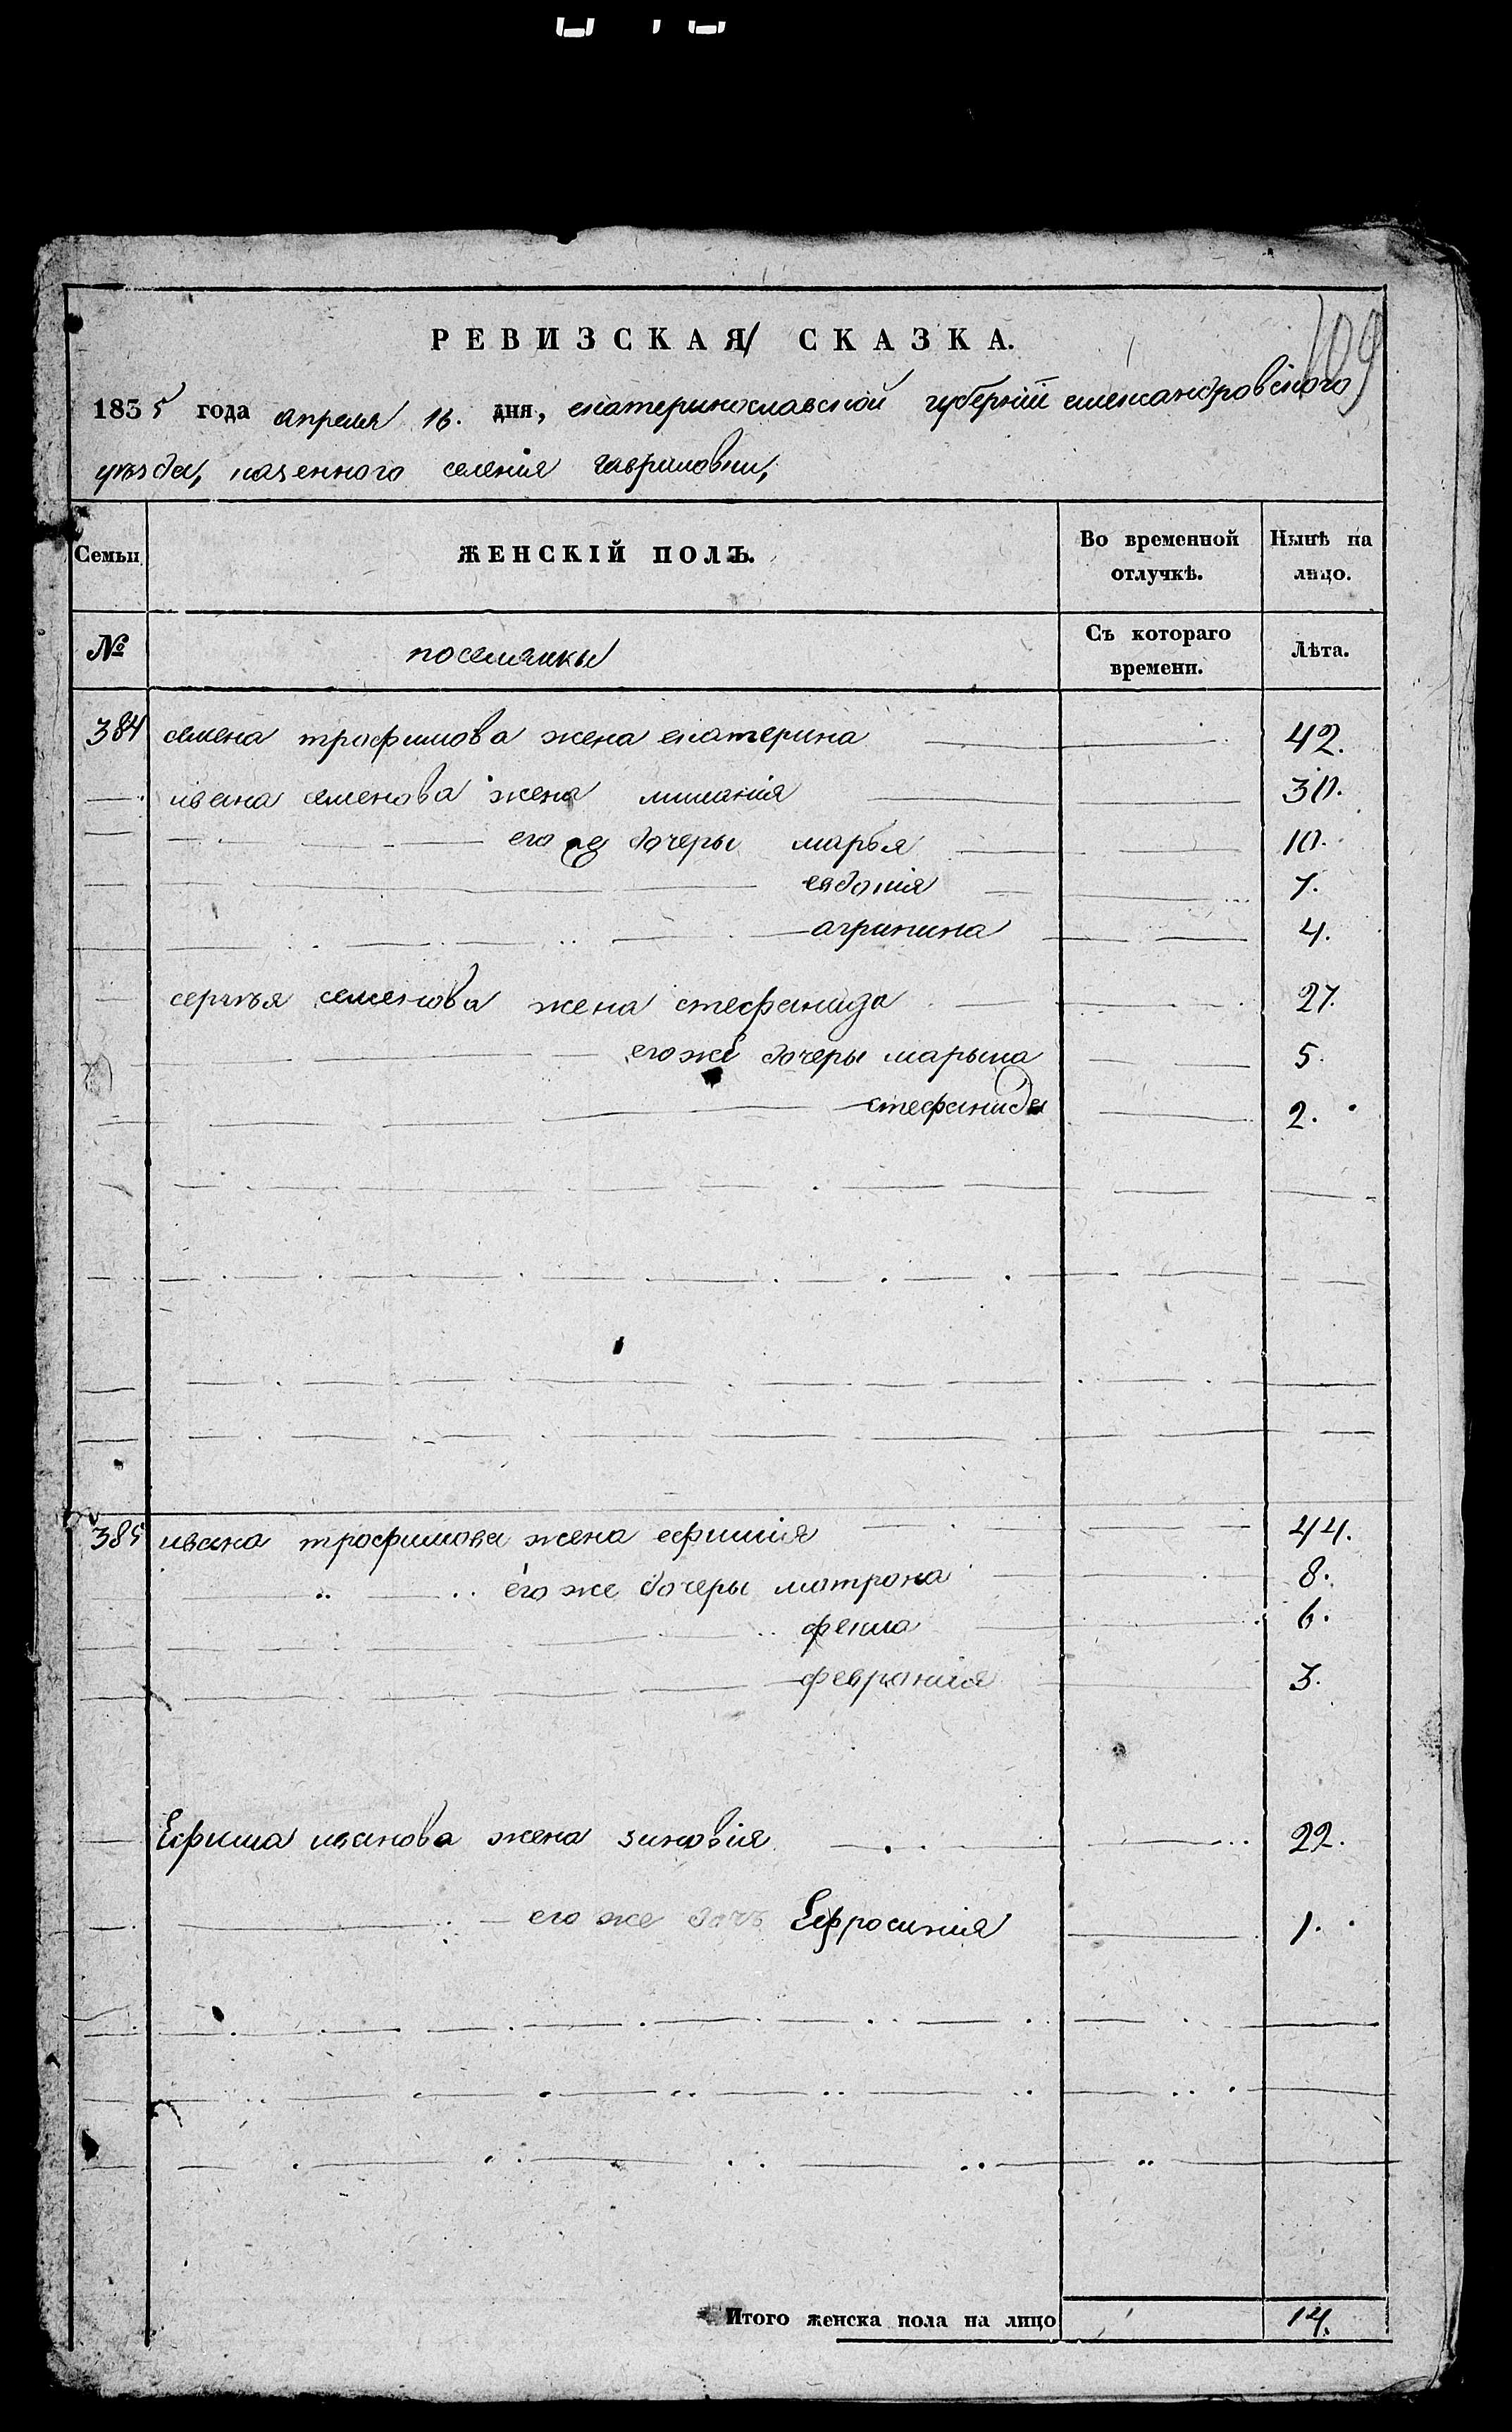 109
РЕВИЗСКАЯ СКАЗКА.
1835 года апреля 16. дня, екатеринославской губернии александровского
уезда, казенного селения гавриловки,
Семьи ЖЕНСКІЙ ПОЛЪ. Во временной отлучкѣ. Нынѣ на лицо.
№ поселянки Съ котораго времени. Лѣта.
384 семена трофимова жена екатерина 42.
ивана семенова жена милания 30.
его же дочеры марья 10.
евдокия 7.
агрипина 4.
сергъя семенова жена стефанида 27.
его же дочеры марьна 5.
стефанида 2.
385 ивана трофимова жена ефимія 44.
его же дочеры матрона 8.
фекла 6.
феврония 3.
Ефима иванова жена зиновія 22.
его же дочь Ефросинія 1.
Итого женска пола на лицо 14.